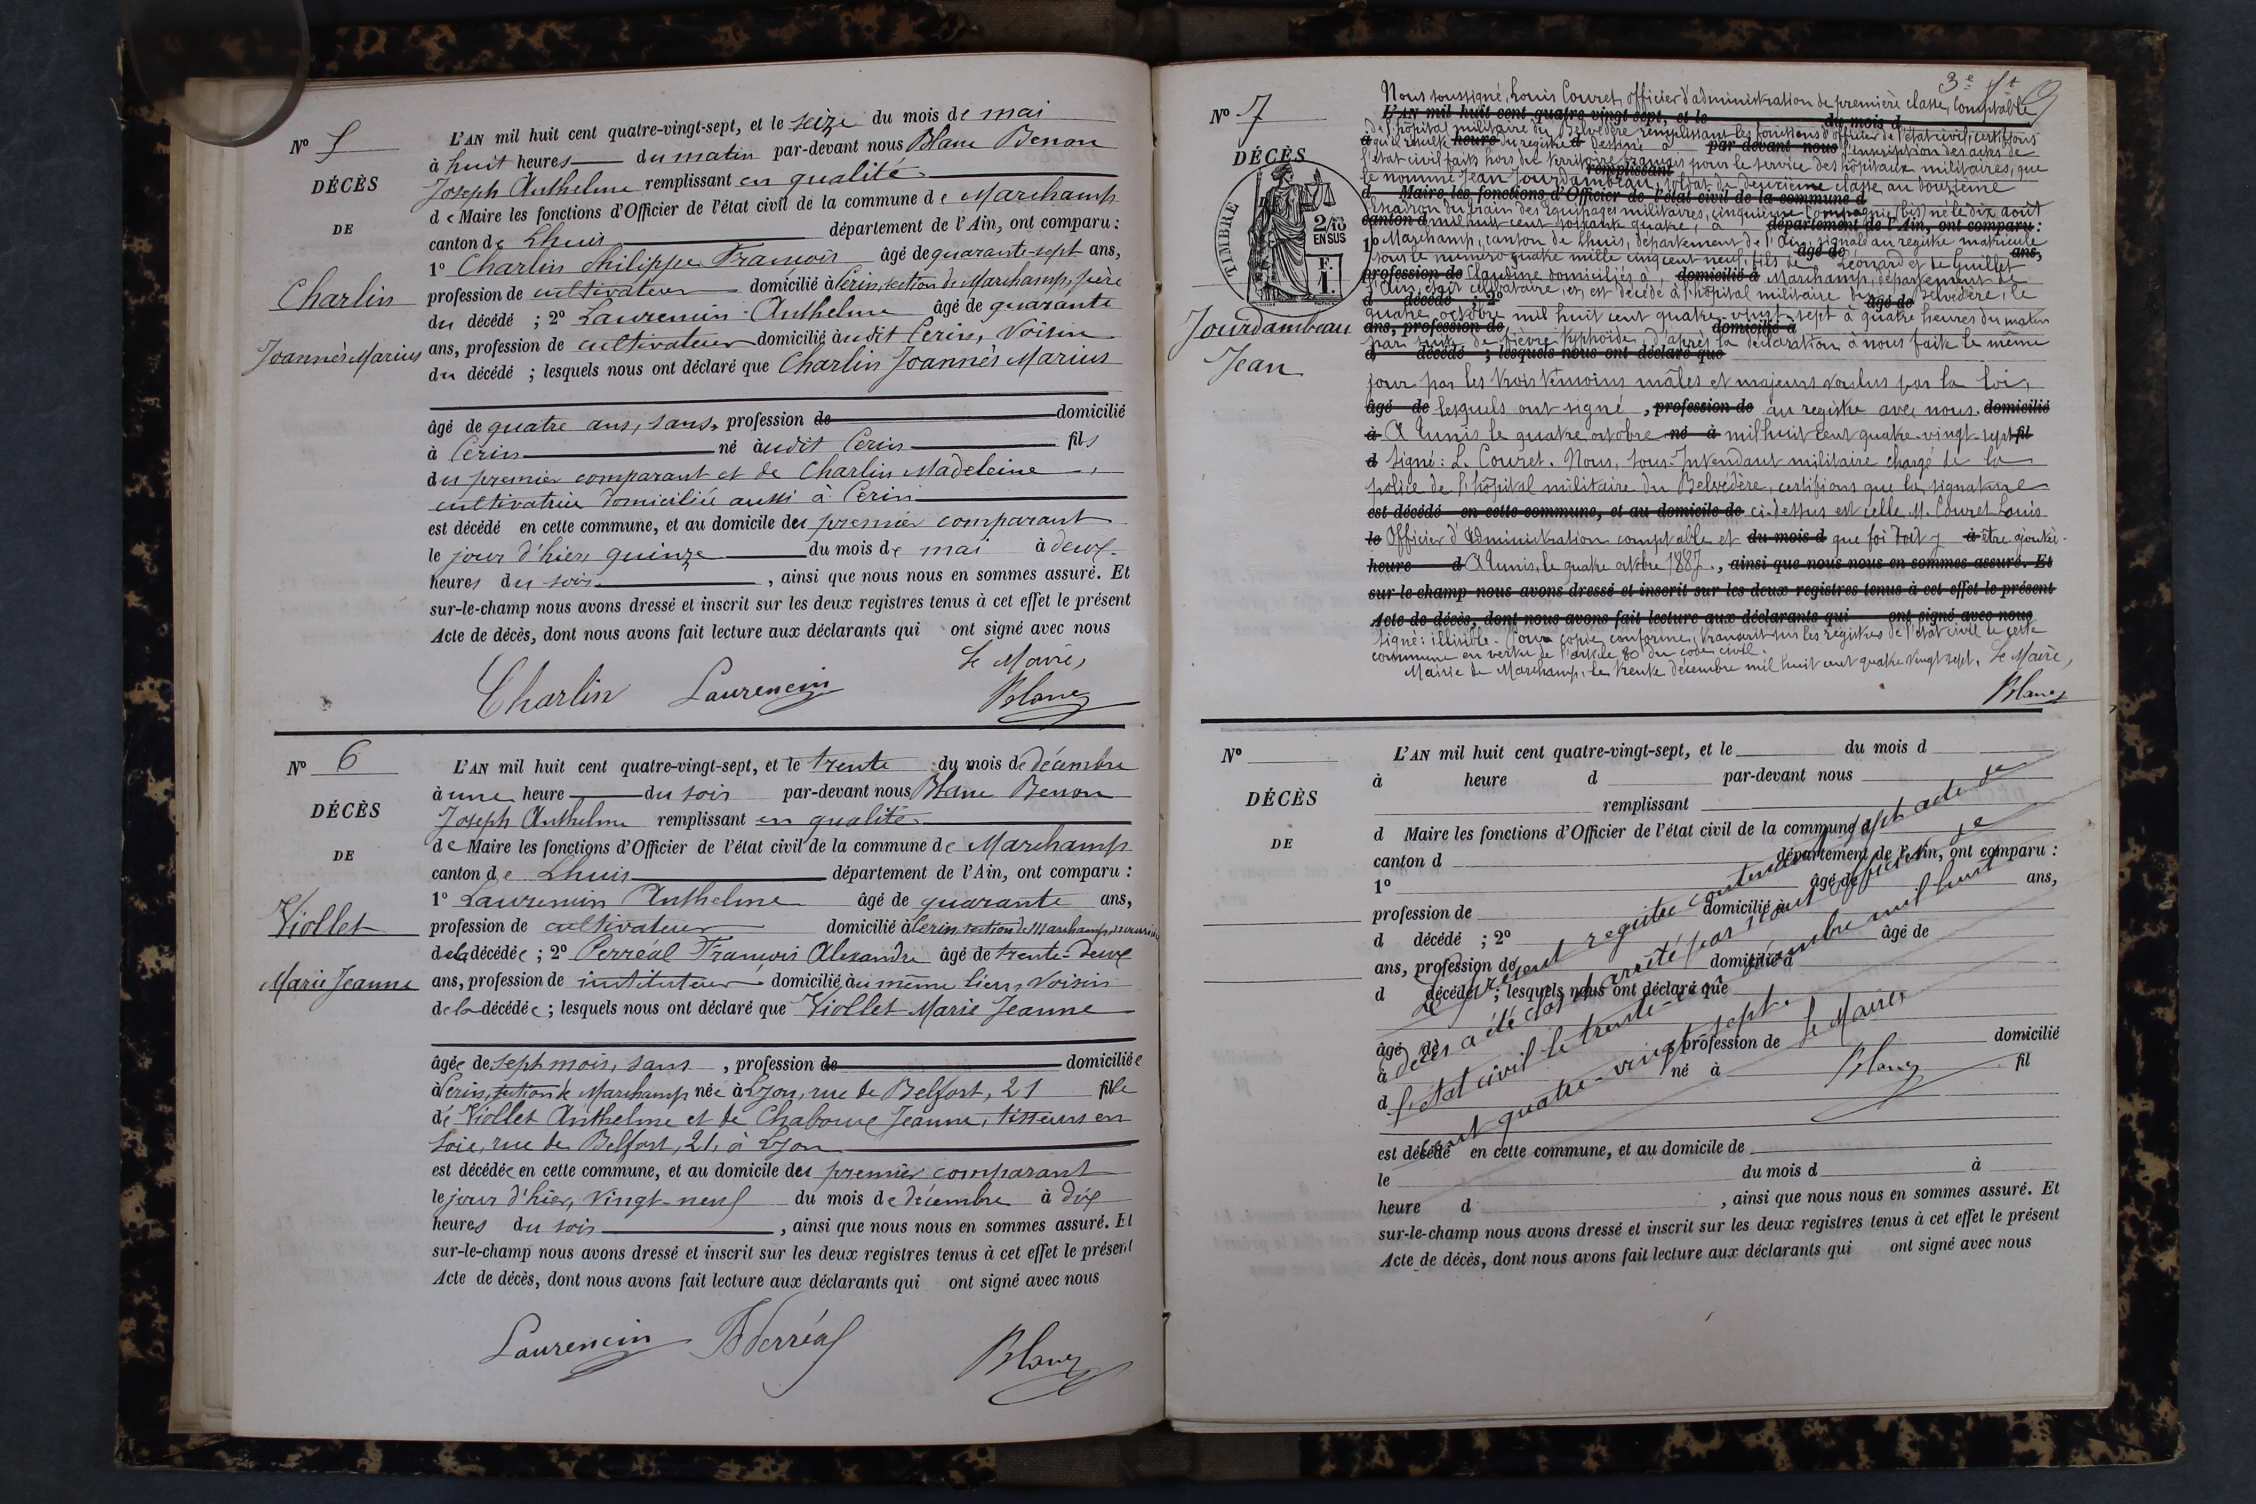 N° 5
DÉCÈS
DE
Charlin
Joannès Marius
L'AN mil huit cent quatre-vingt-sept, et le seize du mois de mai
à huit heures du matin par-devant nous Blanc Benon
Joseph Anthelme remplissant en qualité
de Maire les fonctions d'Officier de l'état civil de la commune de Marchamp
canton de Lhuis département de l'Ain, ont comparu :
1° Charlin Philippe François âgé de quarante-sept ans,
profession de cultivateur domicilié à Cerin, section de Marchamp, père
du décédé ; 2° Laurencin Anthelme âgé de quarante
ans, profession de cultivateur domicilié audit Cerin, voisin
du décédé ; lesquels nous ont déclaré que Charlin Joannès Marius
âgé de quatre ans, sans, profession de domicilié
à Cerin né audit Cerin fils
du premier comparant et de Charlin Madeleine,
cultivatrice domiciliée aussi à Cerin
est décédé en cette commune, et au domicile du premier comparant
le jour d'hier, quinze du mois de mai à deux
heures du soir, ainsi que nous nous en sommes assuré. Et
sur-le-champ nous avons dressé et inscrit sur les deux registres tenus à cet effet le présent
Acte de décès, dont nous avons fait lecture aux déclarants qui ont signé avec nous
Le Maire,
Charlin Laurencin Blanc
N° 6
DÉCÈS
DE
Viollet
Marie Jeanne
L'AN mil huit cent quatre-vingt-sept, et le trente du mois de décembre
à une heure du soir par-devant nous Blanc Benon
Joseph Anthelme remplissant en qualité
de Maire les fonctions d'Officier de l'état civil de la commune de Marchamp
canton de Lhuis département de l'Ain, ont comparu :
1° Laurencin Anthelme âgé de quarante ans,
profession de cultivateur domicilié à Cerin section de Marchamp,
de la décédée ; 2° Perréal François Alexandre âgé de trente-deux
ans, profession de instituteur domicilié au même lieu, voisin
de la décédée ; lesquels nous ont déclaré que Viollet Marie Jeanne
âgée de sept mois, sans, profession de domiciliée
à Cerin, section de Marchamp née à Lyon, rue de Belfort, 21 fille
de Viollet Anthelme et de Chaboue Jeanne, tisseurs en
soie, rue de Belfort, 21, à Lyon
est décédée en cette commune, et au domicile du premier comparant
le jour d'hier, vingt-neuf du mois de décembre à dix
heures du soir, ainsi que nous nous en sommes assuré. Et
sur-le-champ nous avons dressé et inscrit sur les deux registres tenus à cet effet le présent
Acte de décès, dont nous avons fait lecture aux déclarants qui ont signé avec nous
Laurencin Perréal Blanc
3e
N° 7
DÉCÈS
TIMBRE
2/10
EN SUS
F.
1.
Jourdambeau
Jean
Nous soussigné, Louis Couret, officier d'administration de première classe, comptable
L'AN mil huit cent quatre-vingt-sept, et le du mois d
de l'hôpital militaire du Belvédère remplissant les fonctions d'officier de l'état civil, certifions
à qu'il résulte heure du registre d destiné à par-devant nous l'inscription des actes de
l'état civil faits hors du territoire français pour le service des hôpitaux militaires, que
remplissant
le nommé Jean Jourdambeau, soldat de deuxième classe au douzième
d Maire les fonctions d'Officier de l'état civil de la commune d
escadron du train des équipages militaires, cinquième compagnie (bis) né le dix août
canton d mil huit cent soixante quatre, à département de l'Ain, ont comparu :
1° Marchamp, canton de Lhuis, département de l'Ain, signalé au registre matricule
sous le numéro quatre mille cinq cent neuf, fils de âgé de Léonard et de Guillet ans,
profession de Claudine domiciliés à domicilié à Marchamp, département de
l'Ain, était célibataire, et est décédé à l'hôpital militaire du Belvédère, le
d décédé ; 2° âgé de
quatre octobre mil huit cent quatre-vingt-sept à quatre heures du matin
ans, profession de domicilié à
par suite de fièvre typhoïde, d'après la déclaration à nous faite le même
d décédé ; lesquels nous ont déclaré que
jour par les trois témoins mâles et majeurs voulus par la loi,
âgé de lesquels ont signé, profession de au registre avec nous. domicilié
à A Tunis le quatre octobre né à mil huit cent quatre-vingt-sept fil
d Signé : L. Couret. Nous, Sous-Intendant militaire chargé de la
police de l'hôpital militaire du Belvédère, certifions que la signature
est décédé en cette commune, et au domicile de ci-dessus est celle M. Couret Louis
le Officier d'Administration comptable et du mois d que foi doit y à être ajoutée.
heure d A Tunis, le quatre octobre 1887., ainsi que nous nous en sommes assuré. Et
sur-le-champ nous avons dressé et inscrit sur les deux registres tenus à cet effet le présent
Acte de décès, dont nous avons fait lecture aux déclarants qui ont signé avec nous
Signé : illisible. Pour copie conforme, transcrit sur les registres de l'état civil de cette
commune en vertu de l'article 80 du code civil.
Mairie de Marchamp, le trente décembre mil huit cent quatre vingt sept. Le Maire,
Blanc
N°
DÉCÈS
DE
L'AN mil huit cent quatre-vingt-sept, et le du mois d
à heure d par-devant nous
remplissant
d Maire les fonctions d'Officier de l'état civil de la commune d
canton d département de l'Ain, ont comparu :
1° âgé de ans,
profession de domicilié à
d décédé ; 2° âgé de
ans, profession de domicilié à
d décédé ; lesquels nous ont déclaré que
âgé de profession de domicilié
à né à fil
d
est décédé en cette commune, et au domicile de
le du mois d à
heure d , ainsi que nous nous en sommes assuré. Et
sur-le-champ nous avons dressé et inscrit sur les deux registres tenus à cet effet le présent
Acte de décès, dont nous avons fait lecture aux déclarants qui ont signé avec nous
Le présent registre contenant sept actes de
décès a été clos et arrêté par nous officier de
l'état civil le trente-un décembre mil huit
cent quatre-vingt-sept.
Le Maire
Blanc